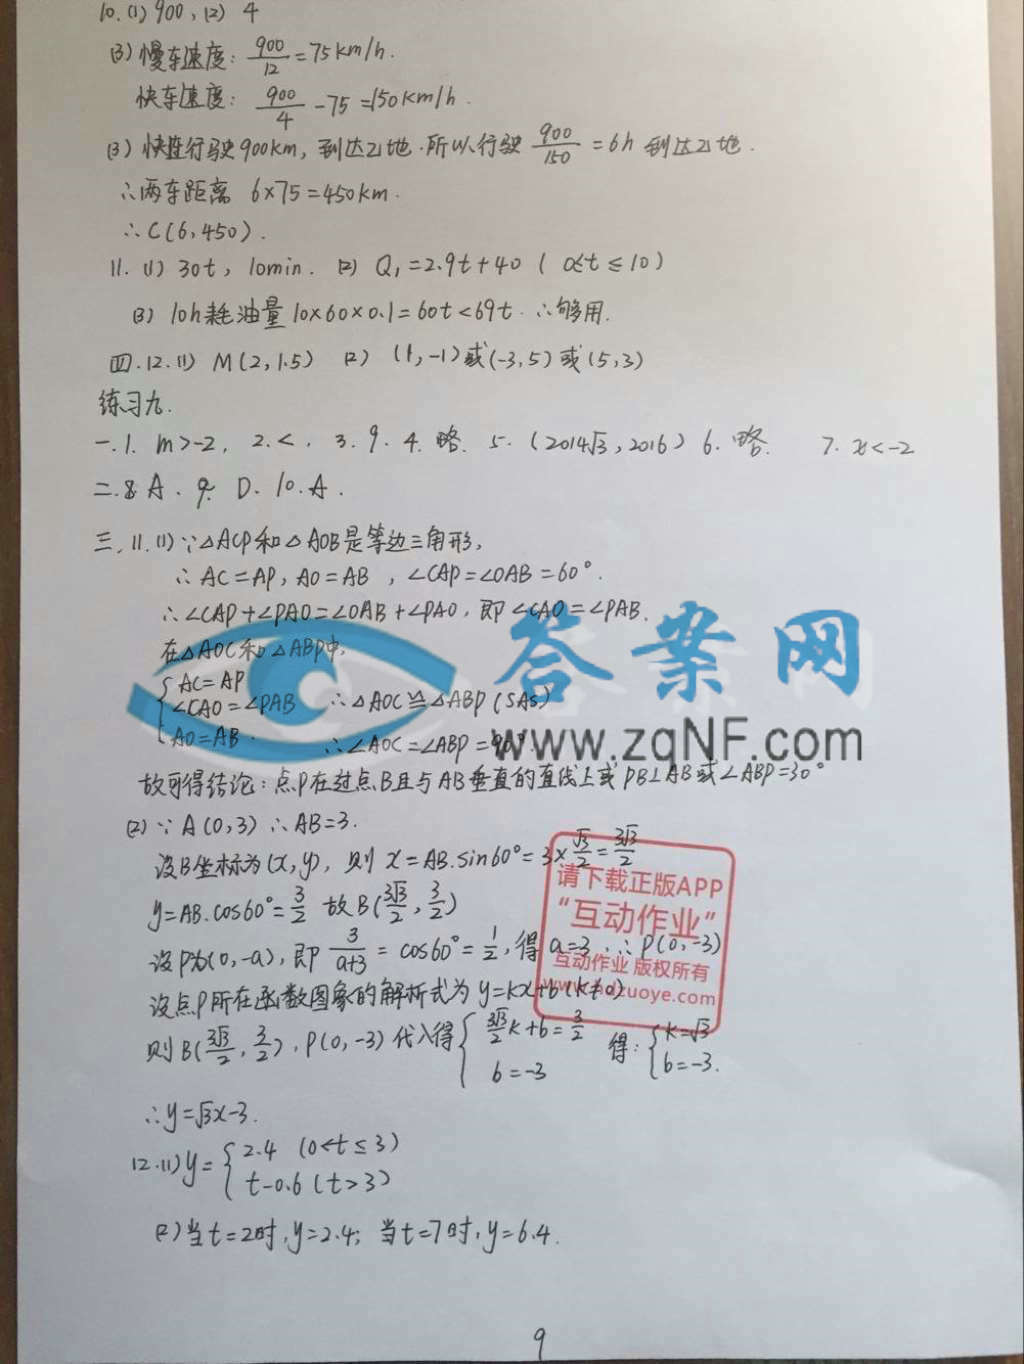 10.(1) 900, (2) 4
(3) 慢车速度: 900/12 = 75km/h.
快车速度: 900/4 - 75 = 150km/h.
(3) 快车行驶900km, 到达乙地. 所以行驶 900/150 = 6h 到达乙地.
∴两车距离 6×75=450km.
∴C(6,450).
11. (1) 30t, 10min. (2) Q₁=2.9t+40 (0≤t≤10)
(3) 10h耗油量 10×60×0.1=60t<69t. ∴够用.
四.12.(1) M(2,1.5) (2) (1,-1)或(-3,5)或(5,3)
练习九.
一.1. m>-2, 2.<. 3.9. 4.略. 5.(2014√3,2016) 6.略. 7. x<-2
二.8.A. 9. D. 10.A.
三.11.(1)∵△ACP和△AOB是等边三角形,
∴AC=AP, AO=AB, ∠CAP=∠OAB=60°.
∴∠CAP+∠PAO=∠OAB+∠PAO, 即∠CAO=∠PAB.
在△AOC和△ABP中,
{AC=AP
∠CAO=∠PAB ∴△AOC≌△ABP(SAS)
AO=AB. ∴∠AOC=∠ABP=90°.
故可得结论: 点P在过点B且与AB垂直的直线上或PB⊥AB或∠ABP=30°
(2)∵A(0,3) ∴AB=3.
设B坐标为(x,y), 则 x=AB.sin60°=3×√3/2=3√3/2
y=AB.cos60°=3/2 故B(3√3/2, 3/2)
设P为(0,-a), 即 3/(a+3) = cos60°=1/2, 得a=3, ∴P(0,-3)
设点P所在函数图象的解析式为 y=kx+b(k≠0)
则B(3√3/2, 3/2), P(0,-3)代入得{3√3/2k+b=3/2 得:{k=√3
b=-3 b=-3.
∴y=√3x-3.
12.(1) y={2.4 (0<t≤3)
t-0.6 (t>3)
(2)当t=2时, y=2.4; 当t=7时, y=6.4.
9
答案网
www.zqNF.com
请下载正版APP
“互动作业”
互动作业 版权所有